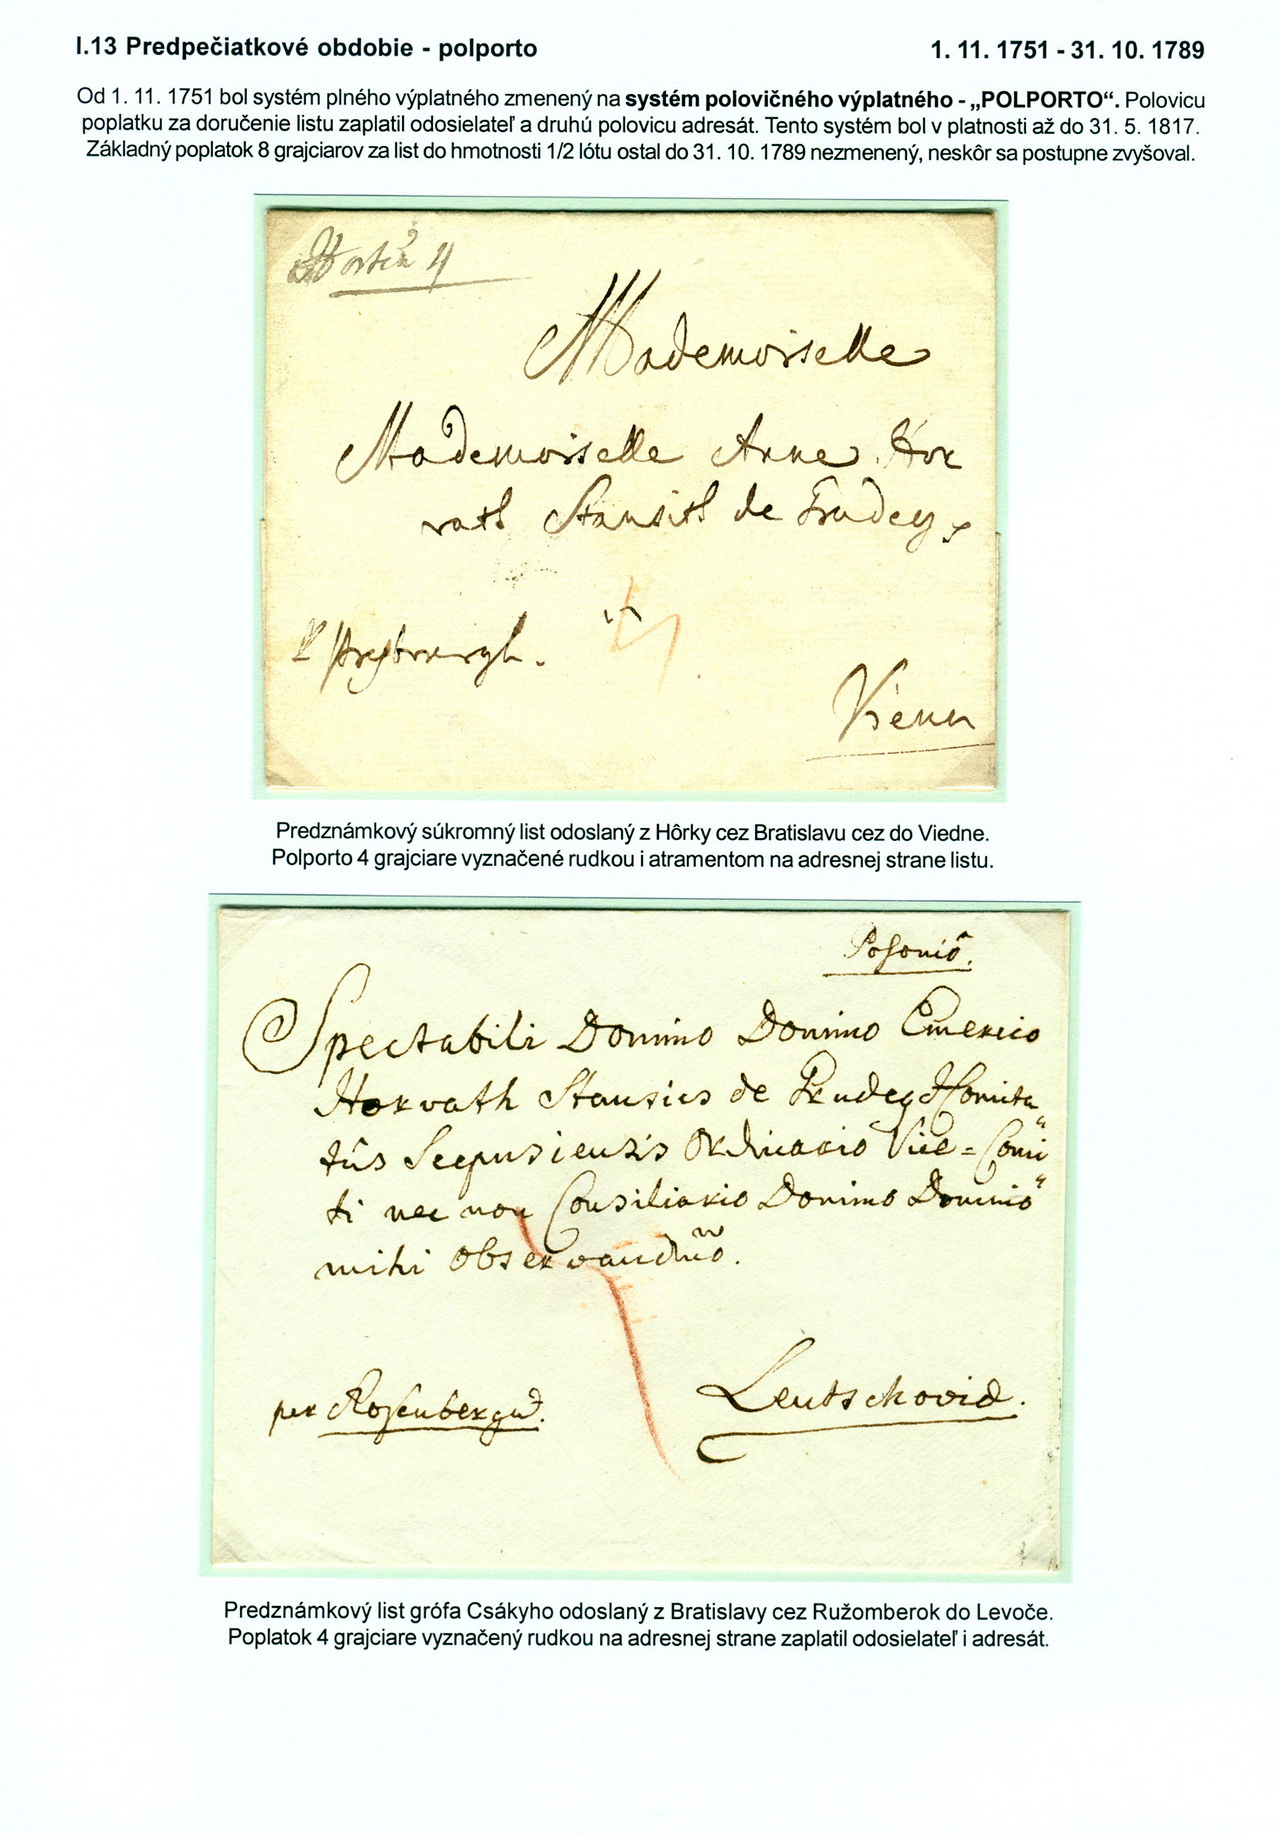 I.13 Predpečiatkové obdobie - polporto
1. 11. 1751 - 31. 10. 1789
Od 1. 11. 1751 bol systém plného výplatného zmenený na systém polovičného výplatného - „POLPORTO“. Polovicu
poplatku za doručenie listu zaplatil odosielateľ a druhú polovicu adresát. Tento systém bol v platnosti až do 31. 5. 1817.
Základný poplatok 8 grajciarov za list do hmotnosti 1/2 lótu ostal do 31. 10. 1789 nezmenený, neskôr sa postupne zvyšoval.
4
Mademoiselle
Mademoiselle Anne Hor
vath Stansith de Gradey
Vienn
Predznámkový súkromný list odoslaný z Hôrky cez Bratislavu cez do Viedne.
Polporto 4 grajciare vyznačené rudkou i atramentom na adresnej strane listu.
Posonio.
Spectabili Domino Domino Emerico
Horvath Stansics de Gradey Comita
tûs Scepusiensis Ordinario Vice=Comi
ti nec non Consiliario Domino Domino
mihi Observandmo.
per Rosenberg
Leutschoviae.
Predznámkový list grófa Csákyho odoslaný z Bratislavy cez Ružomberok do Levoče.
Poplatok 4 grajciare vyznačený rudkou na adresnej strane zaplatil odosielateľ i adresát.